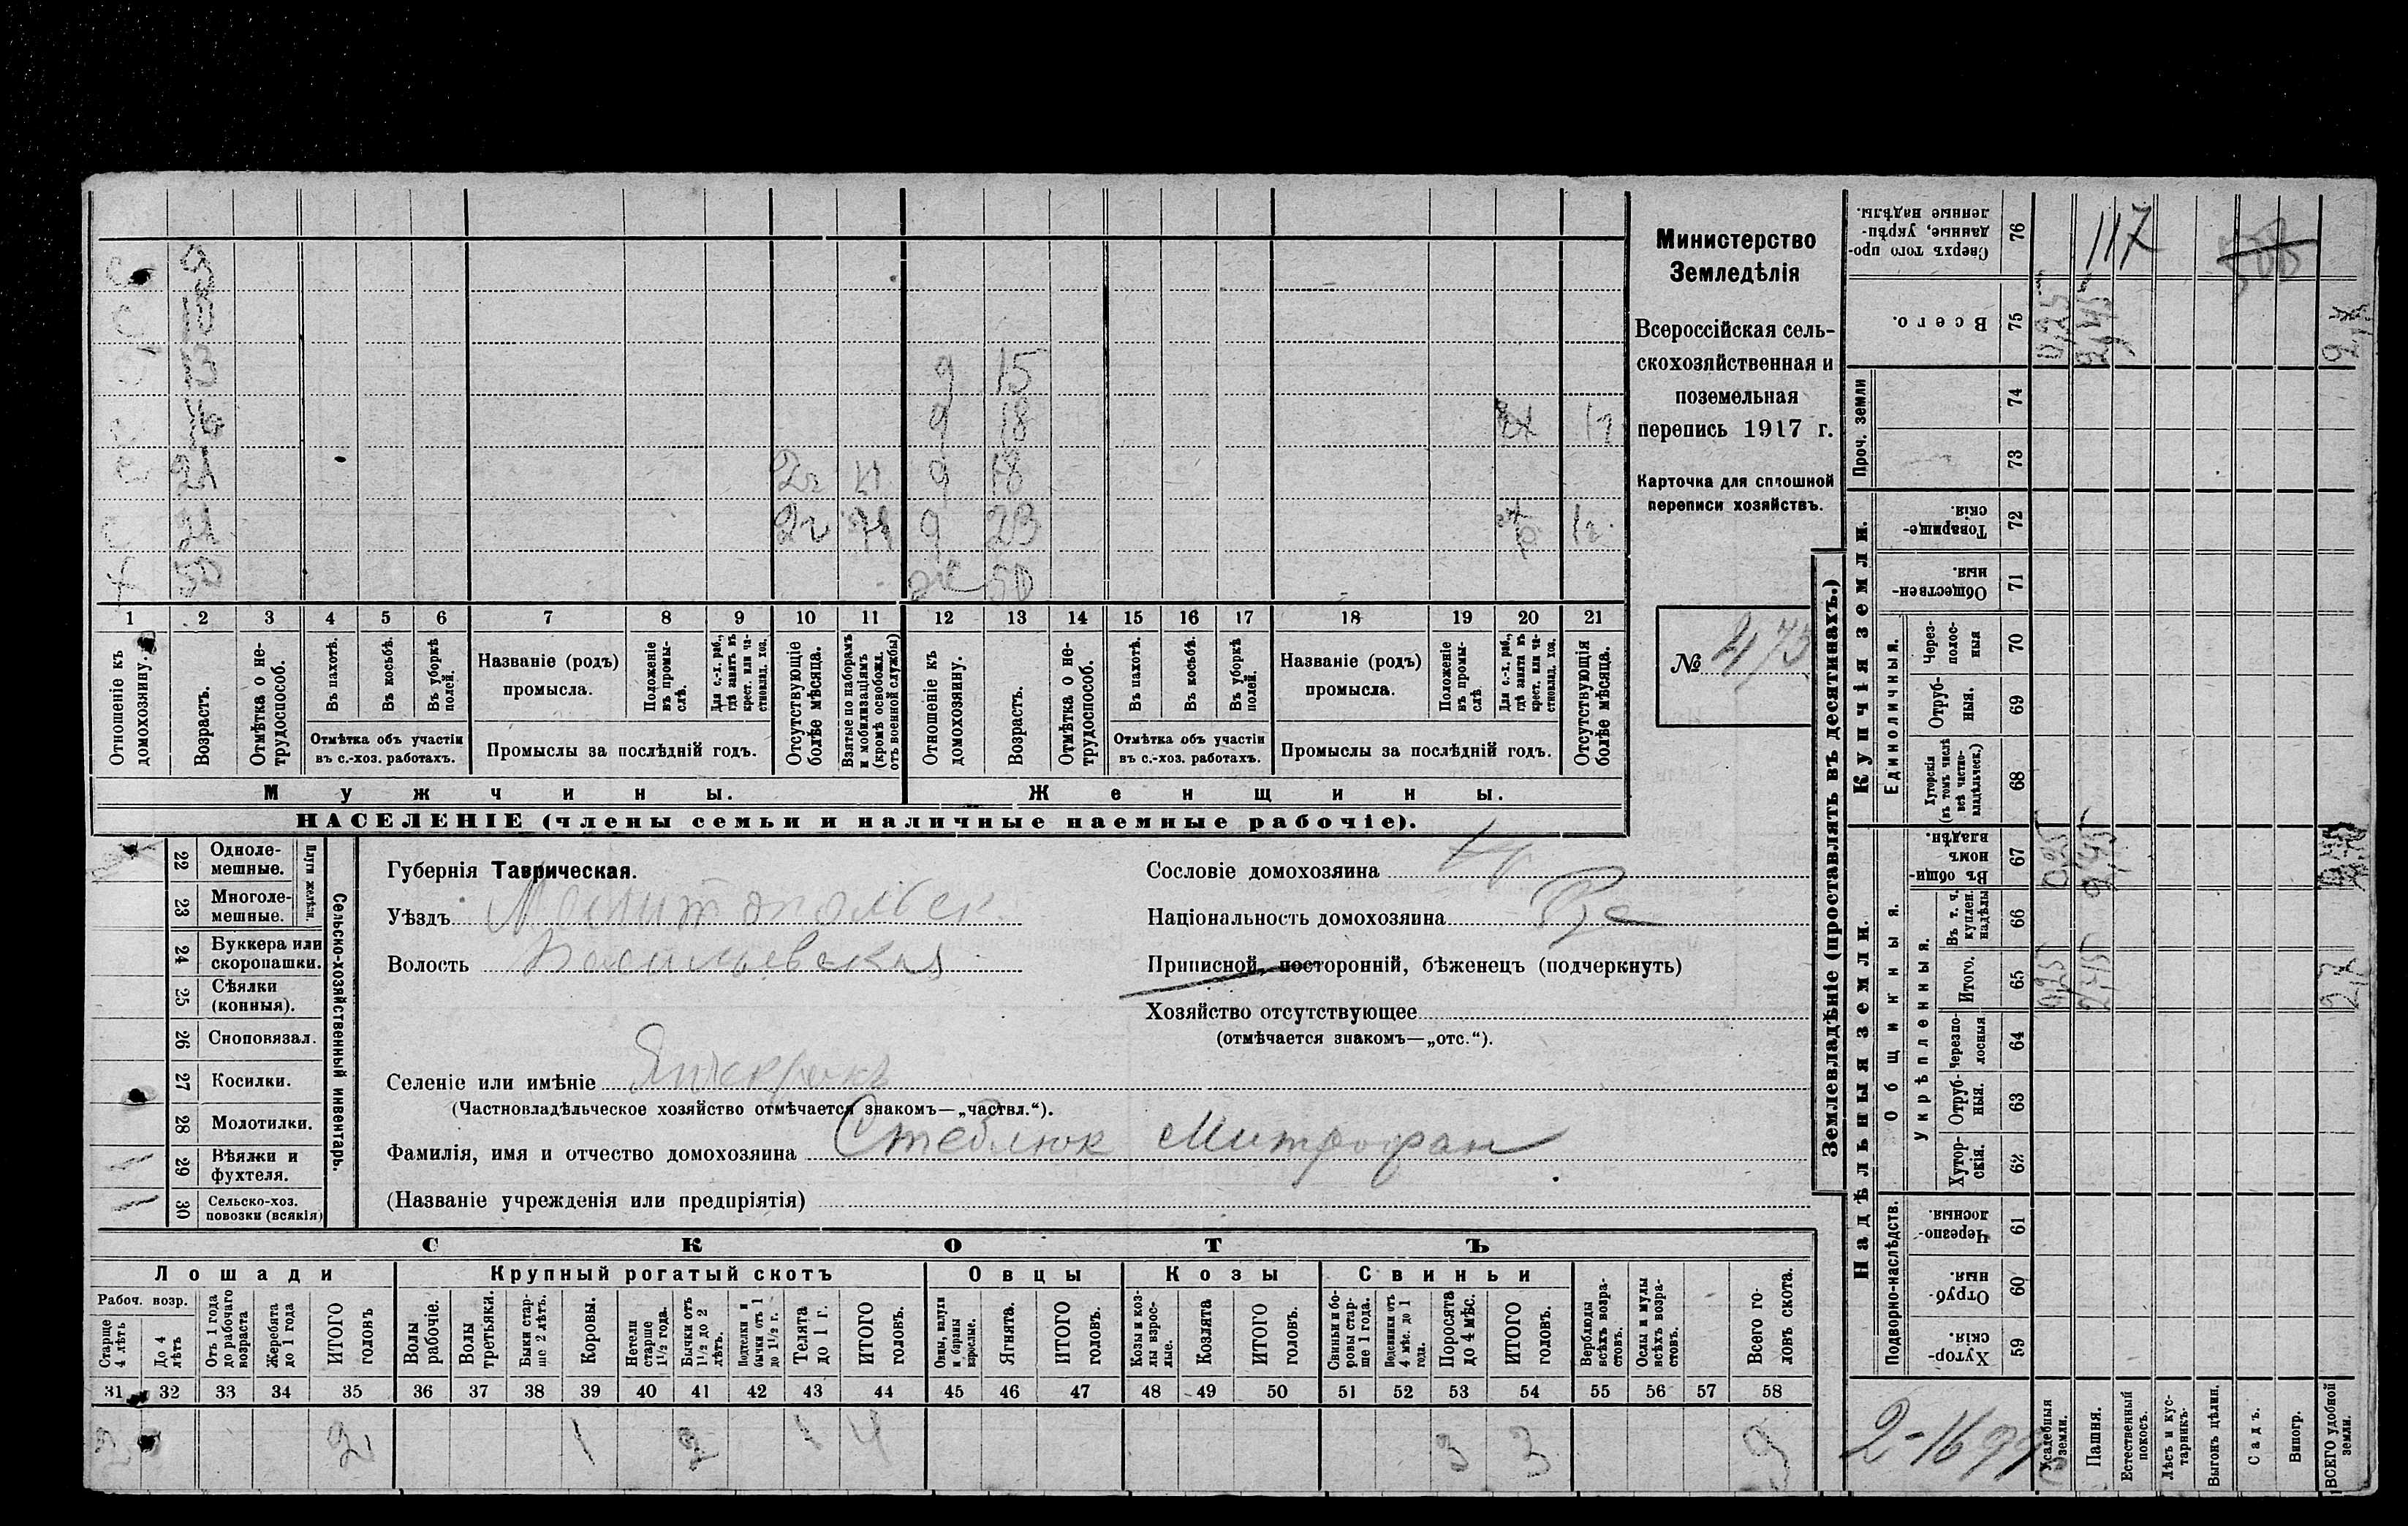 с 9
с 10
с 13 д 15
с 16 д 18 1г
с 21 2г д 18
с 21 2г д 23 1г.
х 50 ж 50
1 2 3 4 5 6 7 8 9 10 11 12 13 14 15 16 17 18 19 20 21
Отношеніе къ домохозяину.
Возрастъ.
Отмѣтка о не-трудоспособ.
Въ пахотѣ.
Въ косьбѣ.
Въ уборкѣ полей.
Отмѣтка объ участіи въ с.-хоз. работахъ.
Названіе (родъ) промысла.
Положеніе въ промы-слѣ.
Для с.-х. раб., гдѣ занятъ въ крест. или ча-стновлад. хоз.
Промыслы за послѣдній годъ.
Отсутствующіе болѣе мѣсяца.
Взятые по наборамъ и мобилизаціямъ (кромѣ освобожд. отъ военной службы)
Отношеніе къ домохозяину.
Возрастъ.
Отмѣтка о не-трудоспособ.
Въ пахотѣ.
Въ косьбѣ.
Въ уборкѣ полей.
Отмѣтка объ участіи въ с.-хоз. работахъ.
Названіе (родъ) промысла.
Положеніе въ промы-слѣ.
Для с.-х. раб., гдѣ занята въ крест. или ча-стновлад. хоз.
Промыслы за послѣдній годъ.
Отсутствующія болѣе мѣсяца.
Мужчины.
Женщины.
НАСЕЛЕНІЕ (члены семьи и наличные наемные рабочіе).
Министерство
Земледѣлія
Всероссійская сель-
скохозяйственная и
поземельная
перепись 1917 г.
Карточка для сплошной
переписи хозяйствъ.
№ 473
Сельско-хозяйственный инвентарь.
Плуги желѣзн.
22 Одноле-мешные.
23 Многоле-мешные.
24 Буккера или скоропашки.
25 Сѣялки (конныя).
26 Сноповязал.
27 Косилки.
28 Молотилки.
/ 29 Вѣялки и фухтеля.
/ 30 Сельско-хоз. повозки (всякія)
Губернія Таврическая.
Уѣздъ Мелитопольск.
Волость Васильевская
Сословіе домохозяина кр
Національность домохозяина Рус
Приписной, посторонній, бѣженецъ (подчеркнуть)
Хозяйство отсутствующее
(отмѣчается знакомъ—„отс.“).
Селеніе или имѣніе Янчекракъ
(Частновладѣльческое хозяйство отмѣчается знакомъ—„частвл.“).
Фамилія, имя и отчество домохозяина Стеблюк Митрофан
(Названіе учрежденія или предпріятія)
СКОТЪ
Лошади
Крупный рогатый скотъ
Овцы
Козы
Свиньи
Рабоч. возр.
Старше 4 лѣтъ
До 4 лѣтъ
Отъ 1 года до рабочаго возраста
Жеребята до 1 года
ИТОГО головъ
Волы рабочіе.
Волы третьяки.
Быки стар-ше 2 лѣтъ.
Коровы.
Нетели старше 1½ года.
Бычки отъ 1½ до 2 лѣтъ.
Подтелки и бычки отъ 1 до 1½ г.
Телята до 1 г.
ИТОГО головъ.
Овцы, валухи и бараны взрослые.
Ягнята.
ИТОГО головъ.
Козы и коз-лы взрос-лые.
Козлята
ИТОГО головъ.
Свиньи и бо-ровы стар-ше 1 года.
Подсвинки отъ 4 мѣс. до 1 года.
Поросята до 4 мѣс.
ИТОГО головъ.
Верблюды всѣхъ возра-стовъ.
Ослы и мулы всѣхъ возра-стовъ.
Всего го-ловъ скота.
31 32 33 34 35 36 37 38 39 40 41 42 43 44 45 46 47 48 49 50 51 52 53 54 55 56 57 58
2 2 1 2 1 4 3 3 9
Землевладѣніе (проставлять въ десятинахъ.)
Купчія земли.
Надѣльныя земли.
Сверхъ того про-данные, укрѣп-ленные надѣлы. 76 117
Всего. 75 0,25 2,45
Проч. земли 74
73
Товарище-скія. 72
Обществен-ныя. 71
Единоличныя.
Через-полос-ныя 70
Отруб-ныя. 69
Хуторскія (въ томъ числѣ всѣ частно-владѣльческ.) 68
Общинныя.
Въ общин-номъ владѣн. 67 0,25 2,45
Укрѣпленныя.
Въ т. ч. куплен. надѣлы 66
Итого. 65 0,25 2,45 2,7
Черезпо-лосныя 64
Отруб-ныя. 63
Хутор-скія. 62
Подворно-наслѣдств.
Черезпо-лосныя. 61
Отруб-ныя. 60
Хутор-скія. 59
2-1699
Усадебныя земли.
Пашня.
Естественный покосъ.
Лѣсъ и кус-тарникъ.
Выгонъ цѣлин.
Садъ.
Виногр.
ВСЕГО удобной земли.